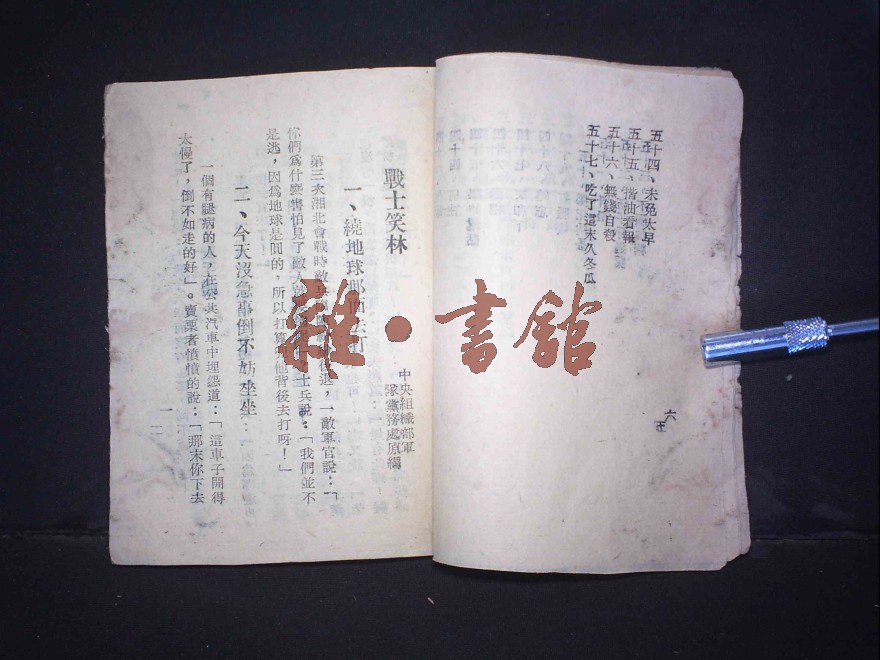 五十四、未免太早
五十五、揩油看報
五十六、無錢自殺
五十七、吃了這末久冬瓜
六
戰士笑林
中央組織部軍
隊黨務處原編
一、繞地球那面去打
第三次湘北會戰時敵退，一敵軍官說：「
你們爲什麽害怕見了敵人士兵說：「我們並不
是逃，因爲地球是圓的，所以打算他背後去打呀！」
二、今天沒急事倒不妨坐坐
一個有腿病的人，在公共汽車中埋怨道：「這車子開得
太慢了，倒不如走的好」。賣票者憤憤的說：「那末你下去
一
雜·書館